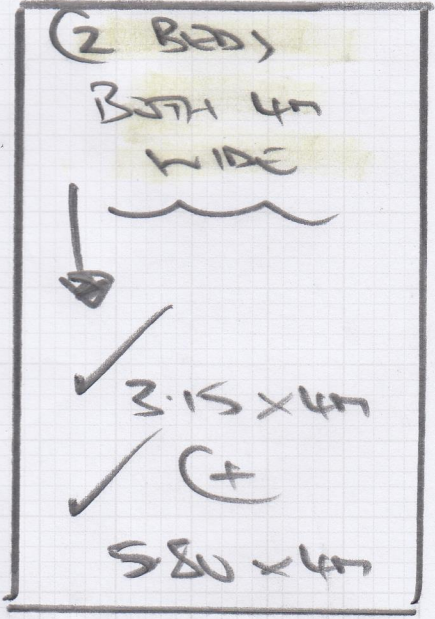 2 BEDS
BOTH 4M
WIDE
3.15 x 4M
+
5.80 x 4M